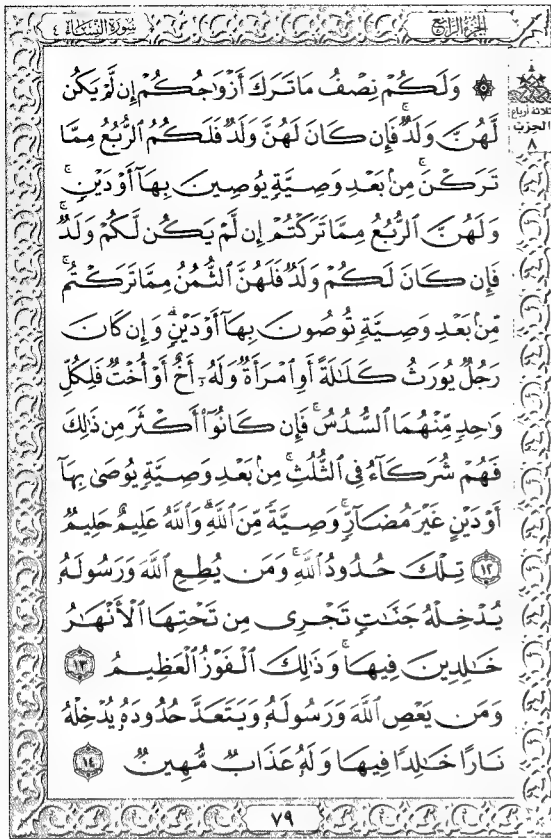 سُورَةُ النِّسَاءِ ٤
الجُزْءُ الرَّابِعُ
۞ وَلَكُمْ نِصْفُ مَا تَرَكَ أَزْوَٰجُكُمْ إِن لَّمْ يَكُن
لَّهُنَّ وَلَدٌ ۚ فَإِن كَانَ لَهُنَّ وَلَدٌ فَلَكُمُ ٱلرُّبُعُ مِمَّا
تَرَكْنَ ۚ مِنۢ بَعْدِ وَصِيَّةٍ يُوصِينَ بِهَآ أَوْ دَيْنٍ ۚ
وَلَهُنَّ ٱلرُّبُعُ مِمَّا تَرَكْتُمْ إِن لَّمْ يَكُن لَّكُمْ وَلَدٌ ۚ
فَإِن كَانَ لَكُمْ وَلَدٌ فَلَهُنَّ ٱلثُّمُنُ مِمَّا تَرَكْتُم ۚ
مِّنۢ بَعْدِ وَصِيَّةٍ تُوصُونَ بِهَآ أَوْ دَيْنٍ ۗ وَإِن كَانَ
رَجُلٌ يُورَثُ كَلَٰلَةً أَوِ ٱمْرَأَةٌ وَلَهُۥٓ أَخٌ أَوْ أُخْتٌ فَلِكُلِّ
وَٰحِدٍ مِّنْهُمَا ٱلسُّدُسُ ۚ فَإِن كَانُوٓا۟ أَكْثَرَ مِن ذَٰلِكَ
فَهُمْ شُرَكَآءُ فِى ٱلثُّلُثِ ۚ مِنۢ بَعْدِ وَصِيَّةٍ يُوصَىٰ بِهَآ
أَوْ دَيْنٍ غَيْرَ مُضَآرٍّ ۚ وَصِيَّةً مِّنَ ٱللَّهِ ۗ وَٱللَّهُ عَلِيمٌ حَلِيمٌ
١٢ تِلْكَ حُدُودُ ٱللَّهِ ۚ وَمَن يُطِعِ ٱللَّهَ وَرَسُولَهُۥ
يُدْخِلْهُ جَنَّٰتٍ تَجْرِى مِن تَحْتِهَا ٱلْأَنْهَٰرُ
خَٰلِدِينَ فِيهَا ۚ وَذَٰلِكَ ٱلْفَوْزُ ٱلْعَظِيمُ ١٣
وَمَن يَعْصِ ٱللَّهَ وَرَسُولَهُۥ وَيَتَعَدَّ حُدُودَهُۥ يُدْخِلْهُ
نَارًا خَٰلِدًا فِيهَا وَلَهُۥ عَذَابٌ مُّهِينٌ ١٤
ثلاثة أرباع
الحزب
٨
٧٩